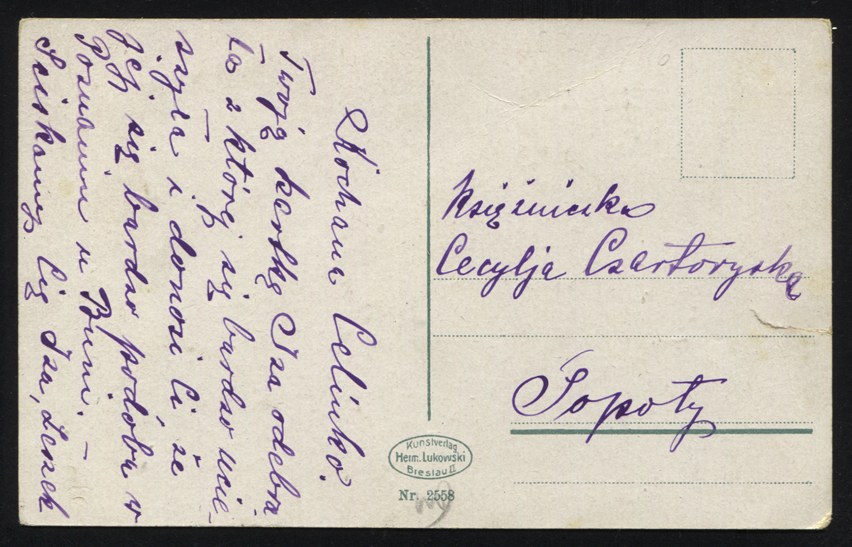 Kochana Celinko.
Twoją kartkę Iza odebra
ła z której się bardzo ucie-
szyła i donosi Ci że
jej się bardzo podoba w
Poznaniu u Buni. –
Sciskamy Cię Iza, Leszek
Księżniczka
Cecylja Czartoryska
Sopoty
Kunstverlag
Herm. Lukowski
Breslau II
Nr. 2558